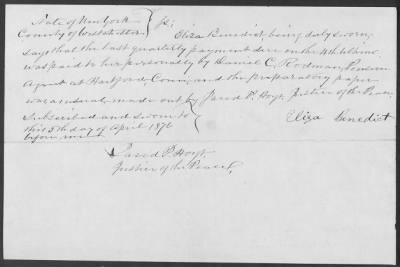 State of New York
County of Westchester } ss;
Eliza Benedict, being duly sworn,
says that the last quarterly payment due on the 4th ultimo
was paid to her personally by Daniel C. Rodman, Pension
Agent at Hartford, Conn; and the preparatory paper
was made out by Jared P. Hoyt, Justice of the Peace,
Subscribed and sworn to
this 5th day of April 1876
before me
Eliza Benedict
Jared P. Hoyt,
Justice of the Peace